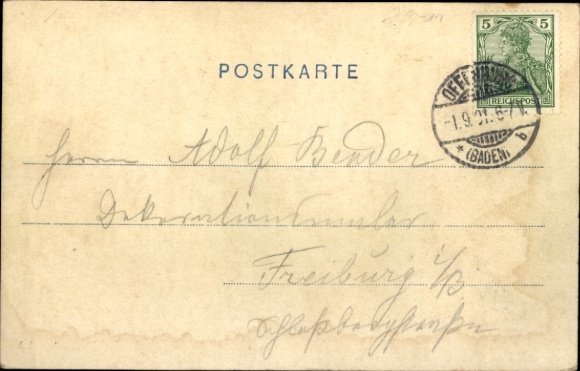 5 5
REICHSPOST
OFFENBURG
-1.9.01.6-7V.
* (BADEN) b
POSTKARTE
Herrn Adolf Bender
Dekorationsmaler
Freiburg i/B
Schloßbergstraße